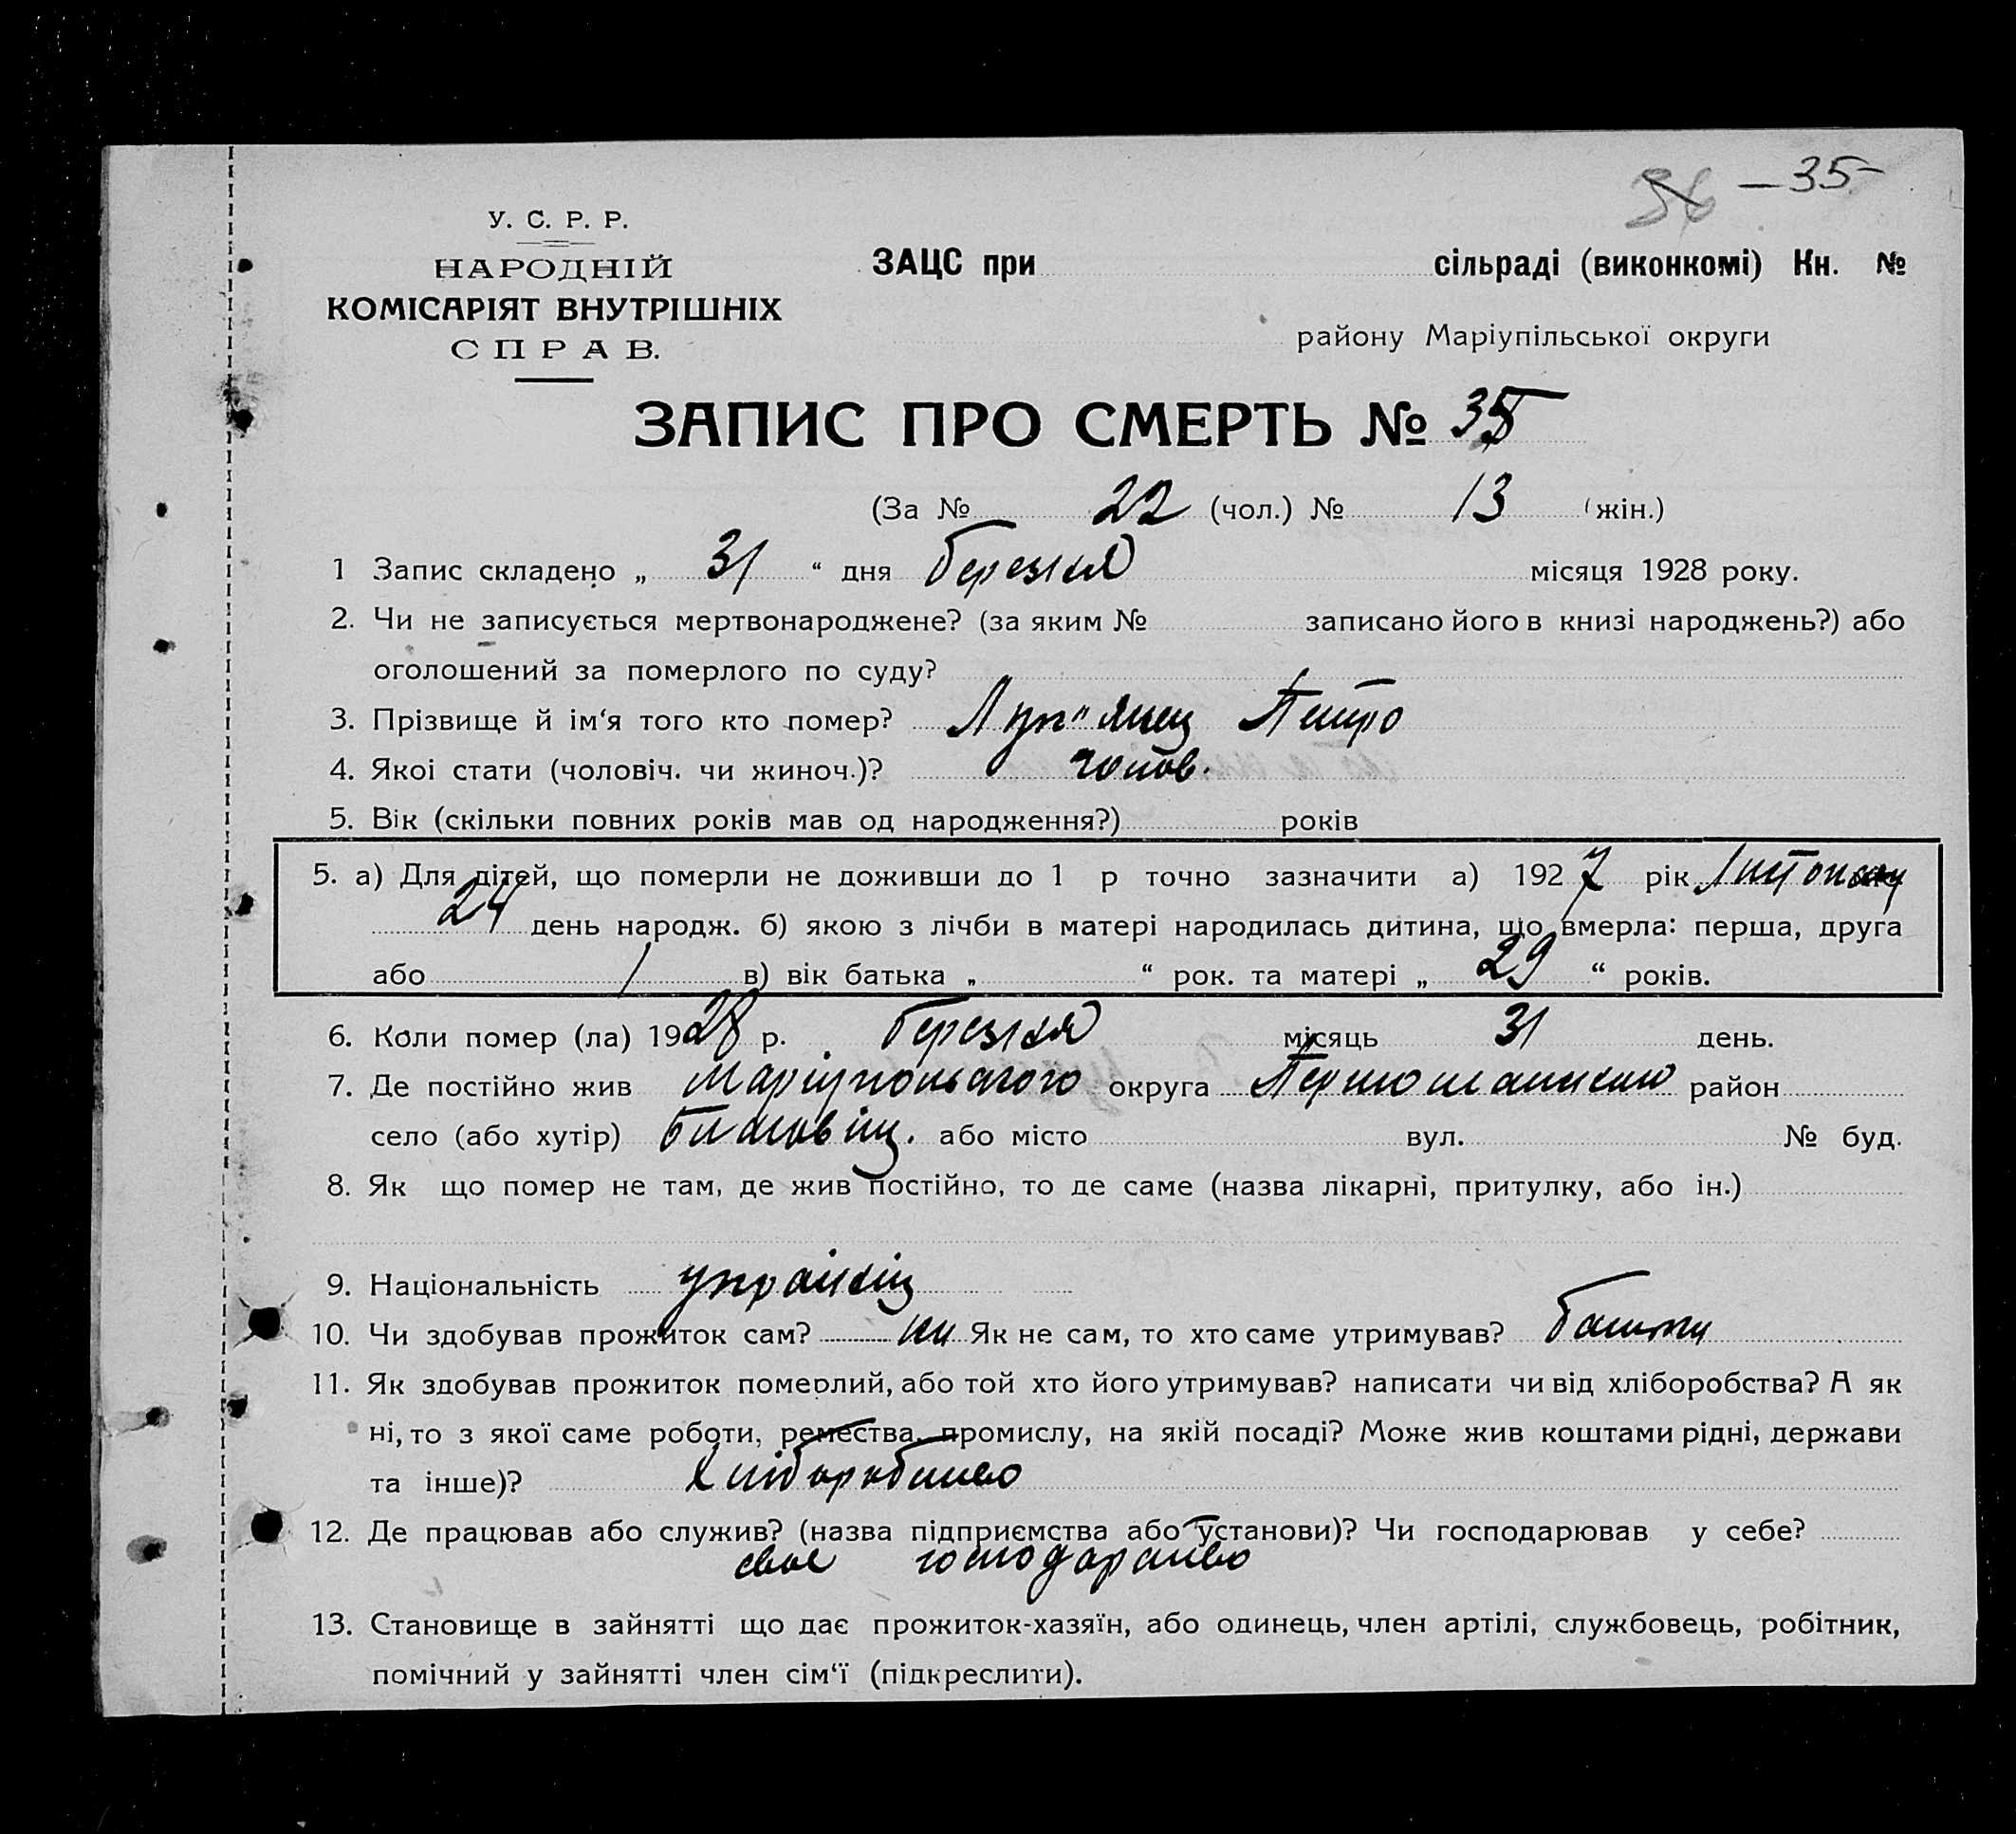 36 — 35
У. С. Р. Р.
НАРОДНІЙ
КОМІСАРІЯТ ВНУТРІШНІХ
СПРАВ.
ЗАЦС при сільраді (виконкомі) Кн. №
району Маріупільської округи
ЗАПИС ПРО СМЕРТЬ № 35
(За № 22 (чол.) № 13 (жін.)
1 Запис складено „ 31 “ дня березня місяця 1928 року.
2. Чи не записується мертвонароджене? (за яким № записано його в книзі народжень?) або
оголошений за померлого по суду?
3. Прізвище й ім‘я того кто помер? Лук"янец Петро
4. Якоі стати (чоловіч. чи жиноч.)? чолов.
5. Вік (скільки повних років мав од народження?) років
5. а) Для дітей, що померли не доживши до 1 р точно зазначити а) 1927 рік Листопаду
24 день народж. б) якою з лічби в матері народилась дитина, що вмерла: перша, друга
або / в) вік батька „ “ рок. та матері „ 29 “ років.
6. Коли помер (ла) 1928 р. березня місяць 31 день.
7. Де постійно жив Маріупольского округа район
село (або хутір) або місто вул. № буд.
8. Як що помер не там, де жив постійно, то де саме (назва лікарні, притулку, або ін.)
9. Національність українец
10. Чи здобував прожиток сам? ни Як не сам, то хто саме утримував? батьки
11. Як здобував прожиток померлий, або той хто його утримував? написати чи від хліборобства? А як
ні, то з якої саме роботи, ремества, промислу, на якій посаді? Може жив коштами рідні, держави
та інше)? Хліборобство
12. Де працював або служив? (назва підприємства або установи)? Чи господарював у себе?
своє господарство
13. Становище в зайнятті що дає прожиток-хазяїн, або одинець, член артілі, службовець, робітник,
помічний у зайнятті член сім‘ї (підкреслити).